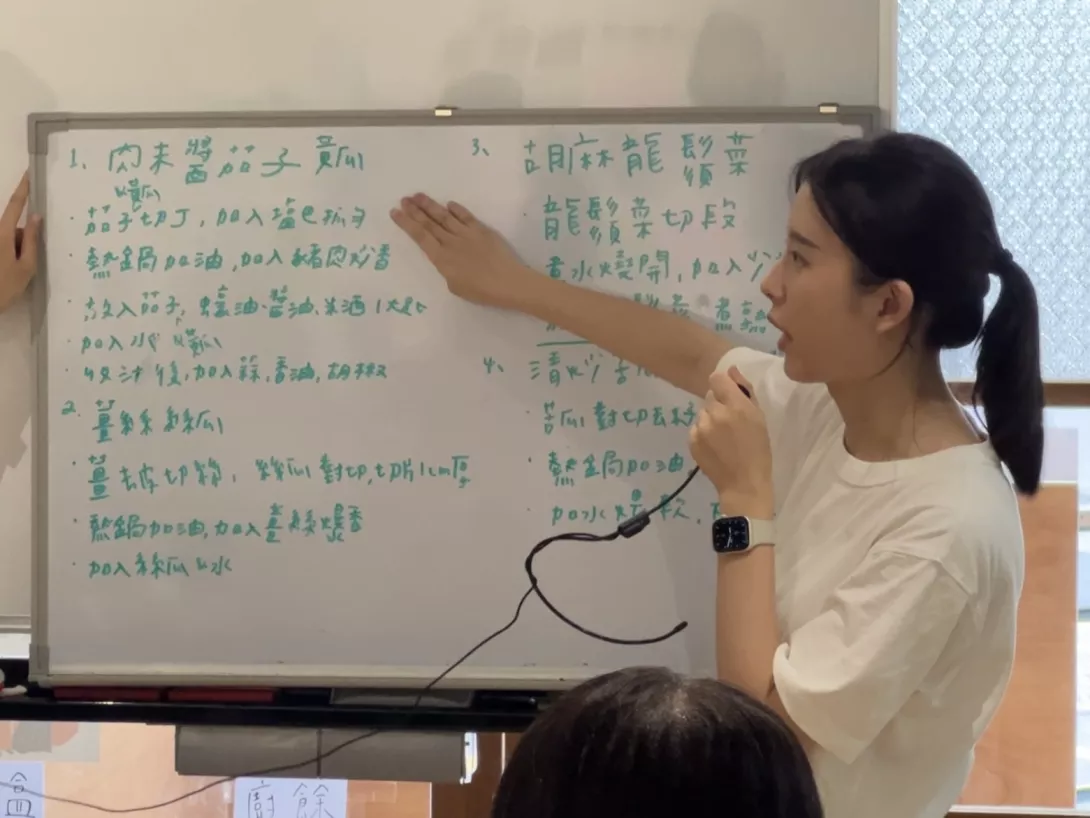 1、肉末醬茄子 黃瓜
&黃瓜
· 茄子切丁,加入鹽巴抓勻
· 熱鍋加油,加入豬肉炒香
· 放入茄子,蠔油、醬油、米酒1大匙
· 加入水 &黃瓜
· 收汁後,加入蒜,香油,胡椒
2. 薑絲絲瓜
· 薑去皮切絲,絲瓜對切,切片1cm厚
· 熱鍋加油,加入薑絲爆香
· 加入絲瓜&水
3、胡麻龍鬚菜
· 龍鬚菜切段
煮水燒開,加入少
煮熟
4、清炒苦
苦瓜對切去籽
· 熱鍋加油,
· 加水燜軟,
盒
廚餘